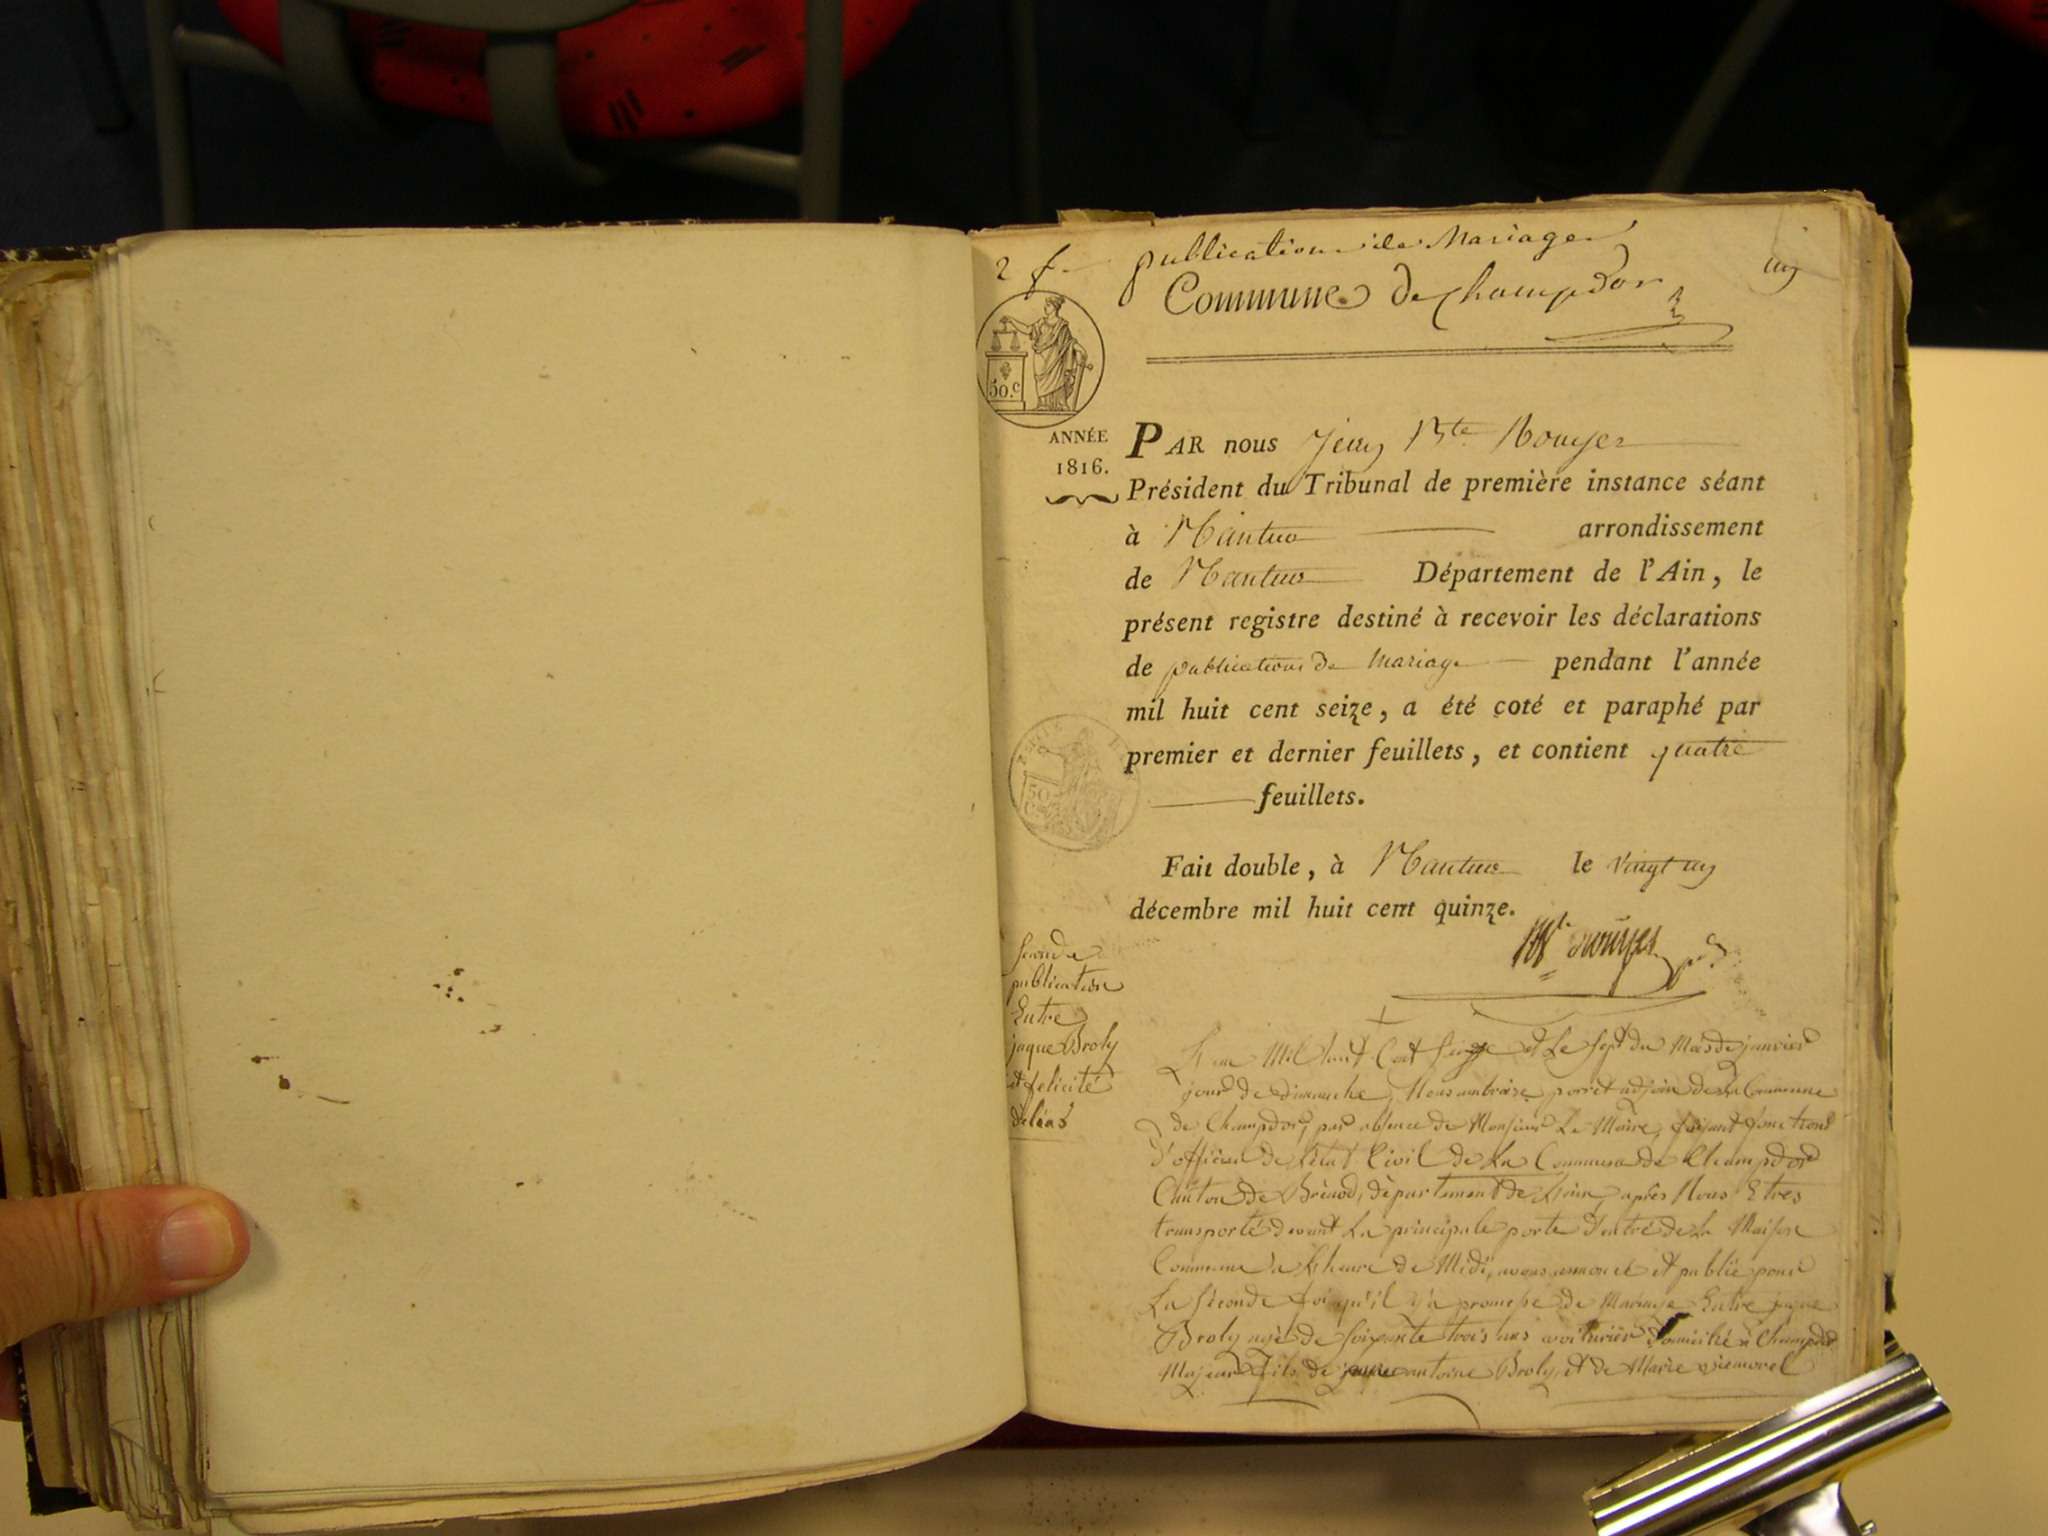 2 f publication de Mariage un
Commune de Champdor
50.c
ANNÉE
1816.
PAR nous Jean Bte Rouyer
Président du Tribunal de première instance séant
à Nantua arrondissement
de Nantua Département de l'Ain, le
présent registre destiné à recevoir les déclarations
de publications de Mariage pendant l'année
mil huit cent seize, a été coté et paraphé par
premier et dernier feuillets, et contient quatre
feuillets.
50
Fait double, à Nantua le vingt un
décembre mil huit cent quinze.
Bte Rouyer
Seconde
publication
Entre
jaque Broly
et felicité
L'an Mil huit Cent Seize et Le Sept du Mois de janvier
jour de dimanche, Nous ambroise porret adjoin de La Commune
de Champdor, par absence de Monsieur Le Maire, faisant fonctions
d'officier de L'état Civil de La Commune de Champdor
Canton de Brénod, département de L'ain, après Nous Etres
transporté devant La principale porte d'entré de La Maison
Commune a L'heure de Midi, avons annoncé et publié pour
La Séconde foi qu'il y'a promesse de Mariage Entre jaque
Broly agé de Soixante trois ans voiturier domicilié a Champdor
Majeur fils de antoine Broly, et de Marie